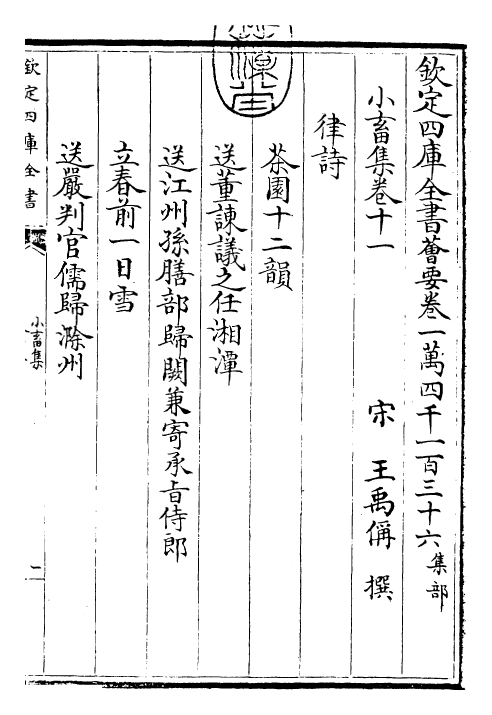 欽定四庫全書薈要卷一萬四千一百三十六集部
小畜集卷十一
宋 王禹偁 撰
律詩
茶園十二韻
送董諫議之任湘潭
送江州孫膳部歸闕兼寄承旨侍郎
立春前一日雪
送嚴判官儒歸滁州
欽定四庫全書
小畜集